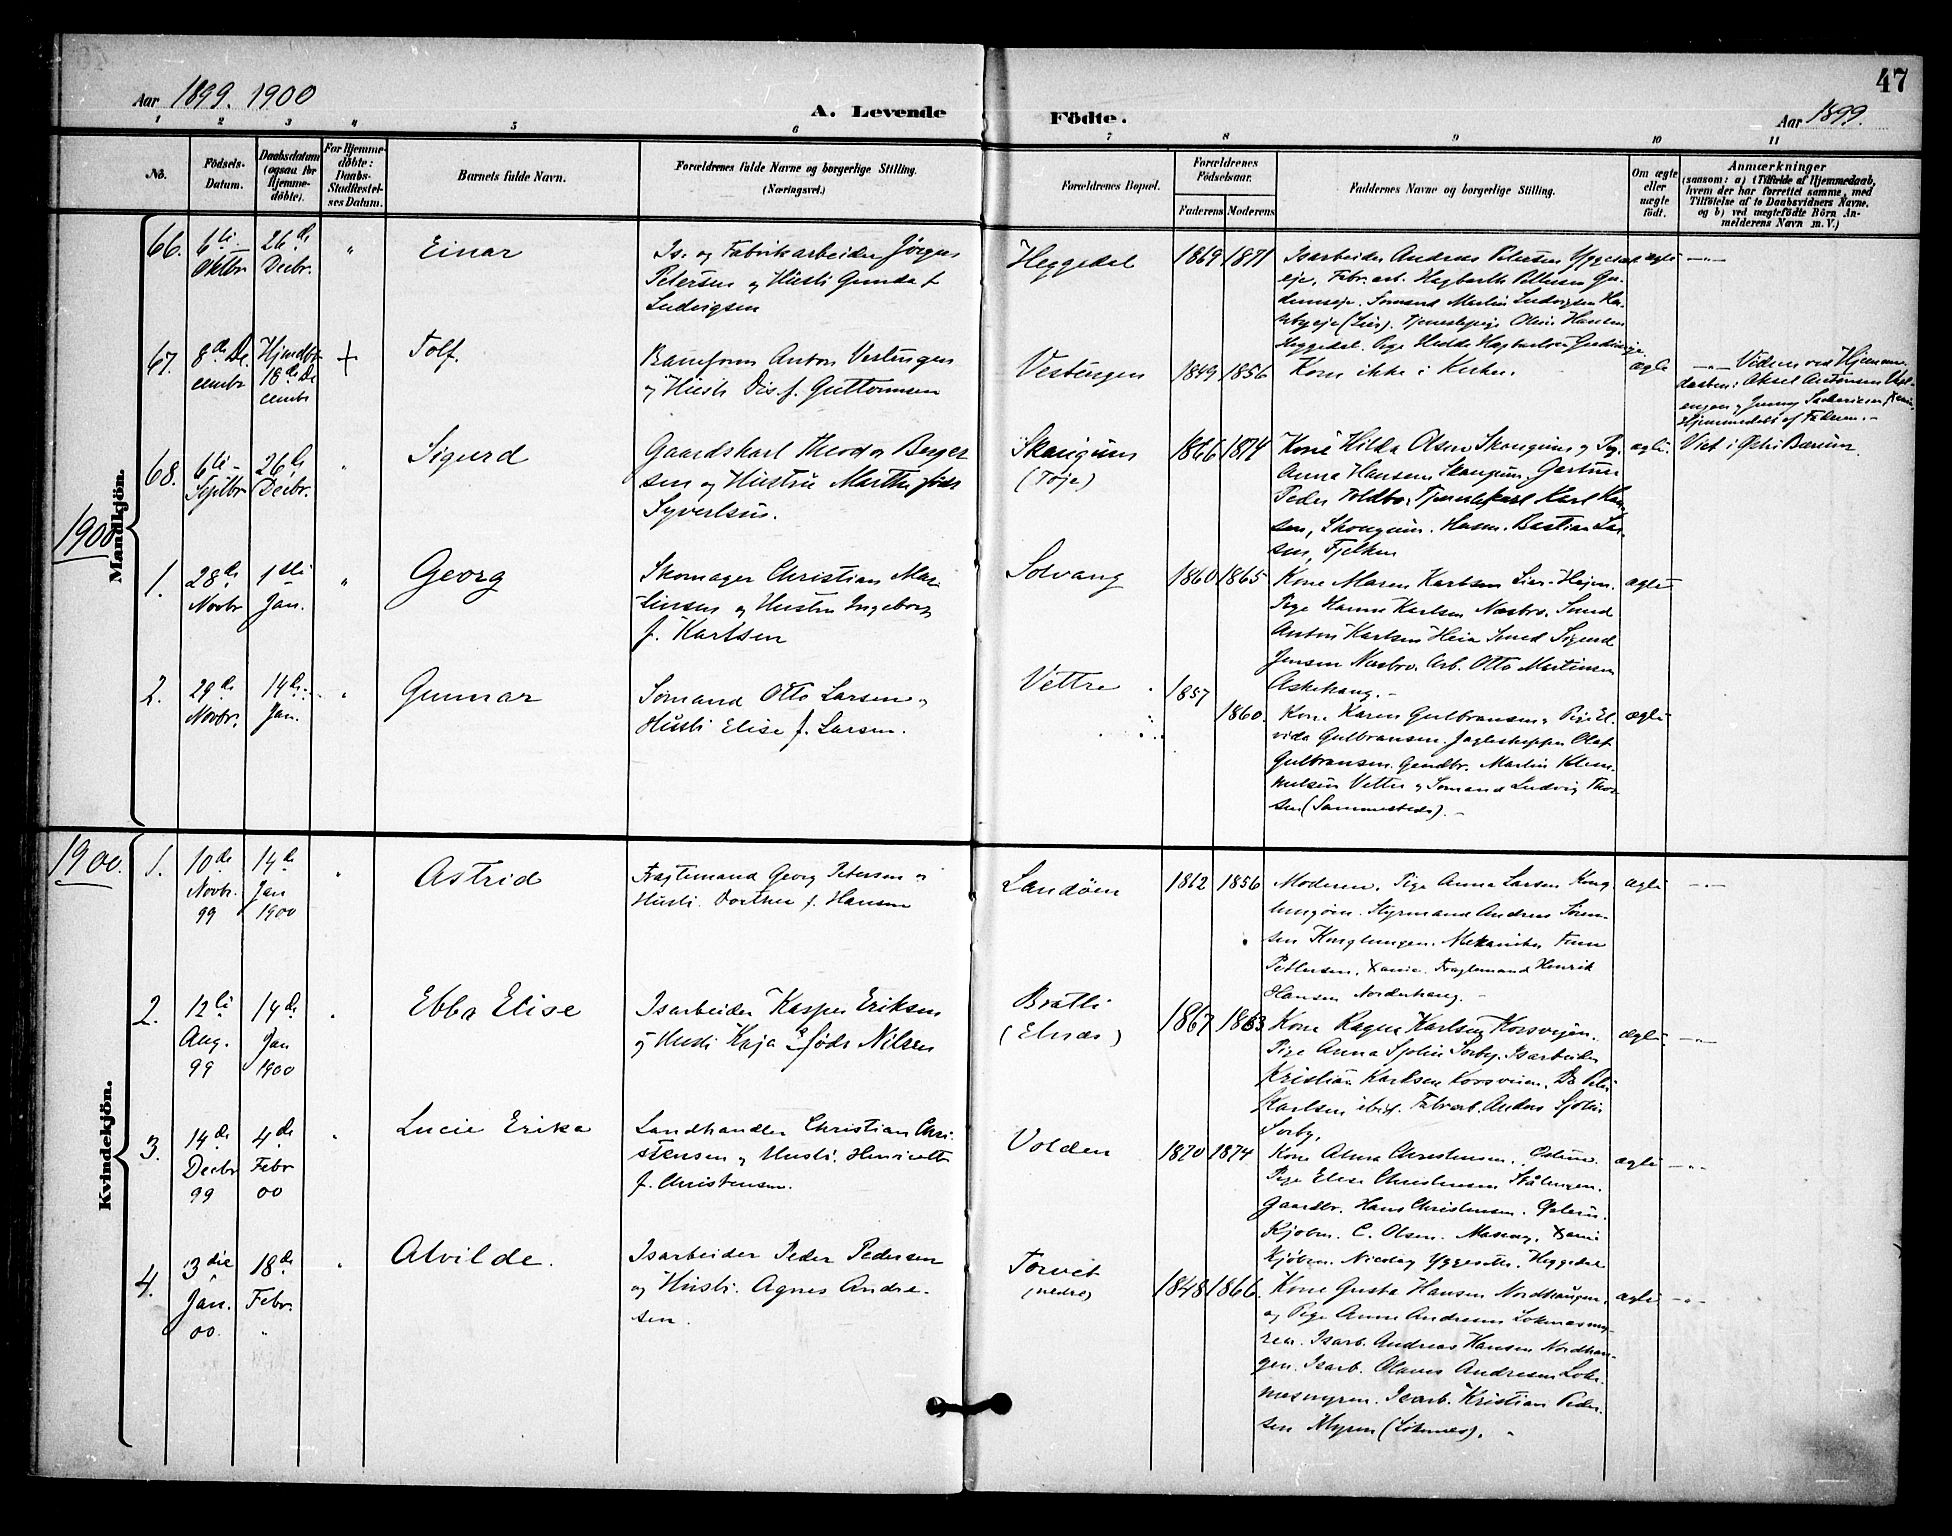 47
Aar 1899. 1900
A. Levende
Födte.
Aar 1899.
1 2 3 4 5 6 7 8 9 10 11
No.
Födsels-
Datum.
Daabsdatum
(ogsaa for
Hjemme-
döbte).
For Hjemme-
döbte:
Daabs-
Stadfæstel-
ses Datum.
Barnets fulde Navn.
Forældrenes fulde Navne og borgerlige Stilling.
(Næringsvei.)
Forældrenes Bopæl.
Forældrenes
Födselsaar.
Faderens Moderens
Faddernes Navne og borgerlige Stilling.
Om ægte
eller
uægte
födt.
Anmærkninger
(saasom: a) i Tilfælde af Hjemmedaab,
hvem der har forrettet samme, med
Tilföielse af to Daabsvidners Navne.
og b) ved uægtefödte Börn An-
melderens Navn m. V.)
Mandkjön.
66.
6te
Oktbr
26de
Decbr.
"
Einar
Is. og Fabrikarbeider Jörgen
Petersen og Hustr Gunda f
Ludvigsen
Heggedal
1869 1871
Isarbeider Andreas Petersen
Heggedal.
ægte
67.
8de De
cembr
Hjemdbt
18de De
cembr
+
Tolf.
Baneform Anton Vestengen
og Hustr Dis f. Guttormsen
Vestengen
1849 1856
Kom ikke i Kirken.
ægte
Vidner ved Hjemme
daaben: Aksel Antonsen Vest-
engen
Hjemmedöbt af Faderen.-
68.
6te
Septbr
26de
Decbr.
"
Sigurd
Gaardskarl Theodor Berger
sen og Hustru Marthe föde
Syvertsen.
Skaugum
(Töje)
1866 1874
Kone Hilda Olsen Skaugum og Pig.
Anna Hansen Skaugum, Gartner
Peder Toldbo. Tjenestekarl Karl Han
sen, Skougum. Husm. Bastian Lar
sen, Fjelken
ægte.
Viet i Östre Bærum.
1900
1.
28de
Novbr
1ste
Jan.
"
Georg
Skomager Christian Mar
tinsen og Hustru Ingeborg
f. Karlsen
Solvang
1860 1865
Kone Maren Karlsen Lier-Hejen.
Pige Hanna Karlsen Næsbro. Smed
Anton Karlsen Heia Smed Sigurd
Jensen Næsbro. Arb. Otto Martinsen
Askehaug.-
ægte
2.
29de
Novbr.
14de
Jan.
"
Gunnar
Sömand Otto Larsen og
Hustr Elise f. Larsen.
Vettre
1857
1860.
Kone Karen Gulbransen, Pige El-
vida Gulbransen. Jagteskipper Olaf
Gulbransen. Gaardbr. Martin Klem-
metsen Vettre og Sömand Ludvig Thor
sen (Sammesteds).-
ægte
1900.
Kvindekjön.
1.
10de
Novbr.
99
14de
Jan
1900
"
Astrid
Fragtemand Georg Petersen og
Hustr. Dorthea f. Hansen
Landöen
1862 1856
Moderen. Pige Anna Larsen Kong-
lungöen. Styrmand Andreas Sören-
sen Konglungen. Mekaniker
Pettersen, Xania. Fragtemand Henrik
Hansen Norderhaug.-
ægte
2.
12te
Aug.
99
14de
Jan
1900
"
Ebba Elise
Isarbeider Kasper Eriksen
og Hustr Kaja E föde Nilsen
Bråtli
(Elnæs)
1867 1863
Kone Ragna Karlsen Korsveien.
Pige Anna Sjölin Sörby. Isarbeider
Kristian Karlsen Korsveien. Do Peter
Karlsen ibid. Fabrarb. Anders Sjölin
Sörby.
ægte.
3.
14de
Decbr
99
4de
Febr
00
"
Lucie Erika
Landhandler Christian Chri-
stensen og Hustr. Henriette
f. Christensen.
Volden
1870 1874
Kone Alma Christensen.
Pige Elise Christensen Stålengen.
Gaardbr. Hans Christensen.
Kjöbm. C. Olsen. Xania
Kjöbm. Nicolay Yggeseth. Heggedal
ægte
4.
3die
Jan.
00
18de
Febr.
"
"
Alvilde.
Isarbeider Peder Pedersen
og Hustr. Agnes Andre-
sen.
Torvet
(nedre)
1848 1866.
Kone Gusta Hansen Nordhaugen,
og Pige Anna Andresen Löknæsmy-
ren. Isarb. Andreas Hansen Nordhau-
gen. Isarb. Olaves Andresen Lök-
næsmyren. Isarb. Kristian Peder-
sen Myren (Löknes).
ægte